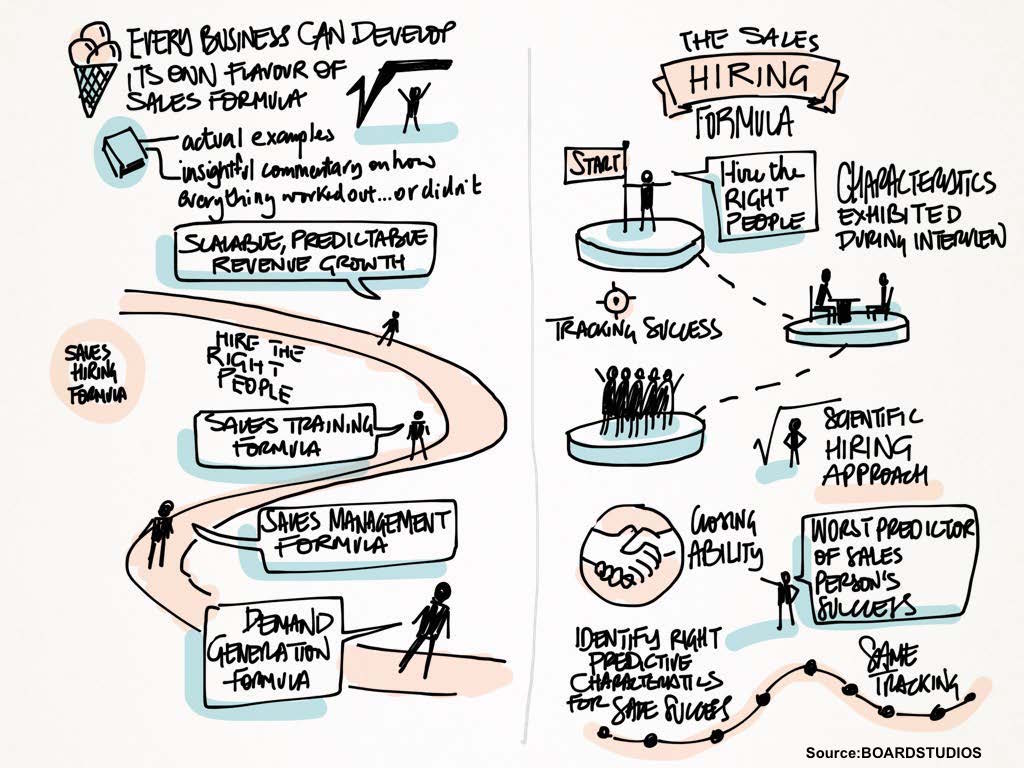 EVERY BUSINESS CAN DEVELOP
ITS OWN FLAVOUR OF
SALES FORMULA
actual examples
insightful commentary on how
everything worked out...or didn't
SCALABLE, PREDICTABLE
REVENUE GROWTH
SALES
HIRING
FORMULA
HIRE THE
RIGHT
PEOPLE
SALES TRAINING
FORMULA
SALES MANAGEMENT
FORMULA
DEMAND
GENERATION
FORMULA
THE SALES
HIRING
FORMULA
START
Hire the
RIGHT
PEOPLE
CHARACTERISTICS
EXHIBITED
DURING INTERVIEW
TRACKING SUCCESS
SCIENTIFIC
HIRING
APPROACH
CLOSING
ABILITY
WORST PREDICTOR
OF SALES
PERSON'S
SUCCESS
IDENTIFY RIGHT
PREDICTIVE
CHARACTERISTICS
FOR SALE SUCCESS
SAME
TRACKING
Source:BOARDSTUDIOS